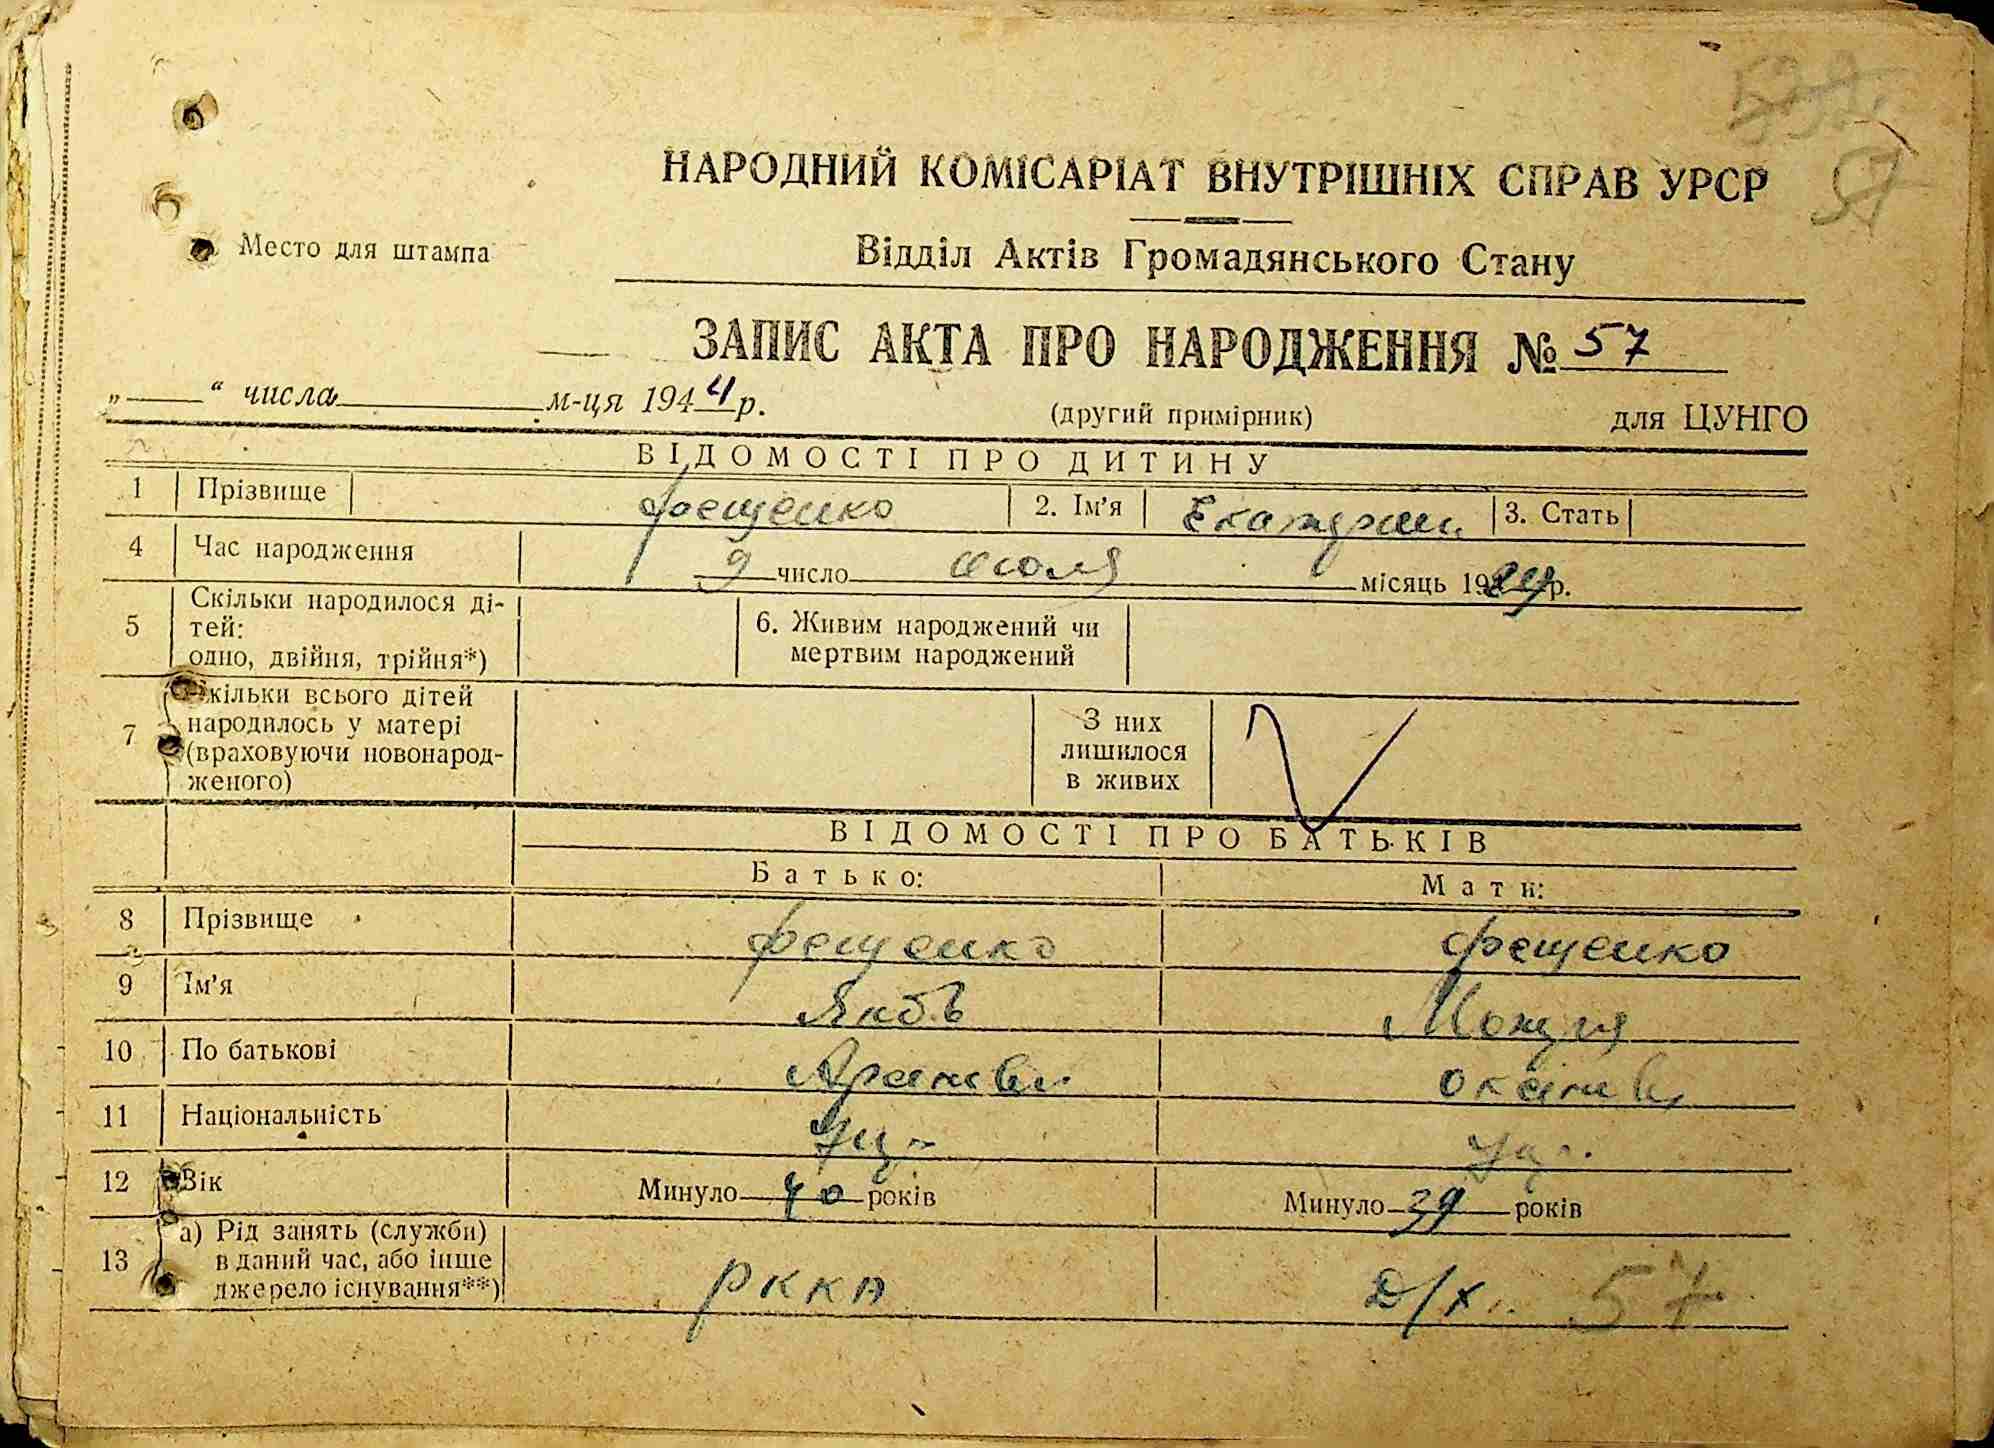 57
НАРОДНИЙ КОМІСАРІАТ ВНУТРІШНІХ СПРАВ УРСР
Место для штампа
Відділ Актів Громадянського Стану
ЗАПИС АКТА ПРО НАРОДЖЕННЯ № 57
„ “ числа м-ця 1944 р.
(другий примірник)
для ЦУНГО
ВІДОМОСТІ ПРО ДИТИНУ
1 Прізвище Фещенко 2. Ім'я Екатерин 3. Стать
4 Час народження 9 число Июля місяць 19 р.
5 Скільки народилося ді-
тей:
одно, двійня, трійня*)
6. Живим народжений чи
мертвим народжений
7 Скільки всього дітей
народилось у матері
(враховуючи новонарод-
женого)
З них
лишилося
в живих
ВІДОМОСТІ ПРО БАТЬКІВ
Батько: Мати:
8 Прізвище Фещенко Фещенко
9 Ім'я Яков
10 По батькові
11 Національність
12 Вік Минуло 40 років Минуло 39 років
13 а) Рід занять (служби)
в даний час, або інше
джерело існування**)
РККА Д/х. 57